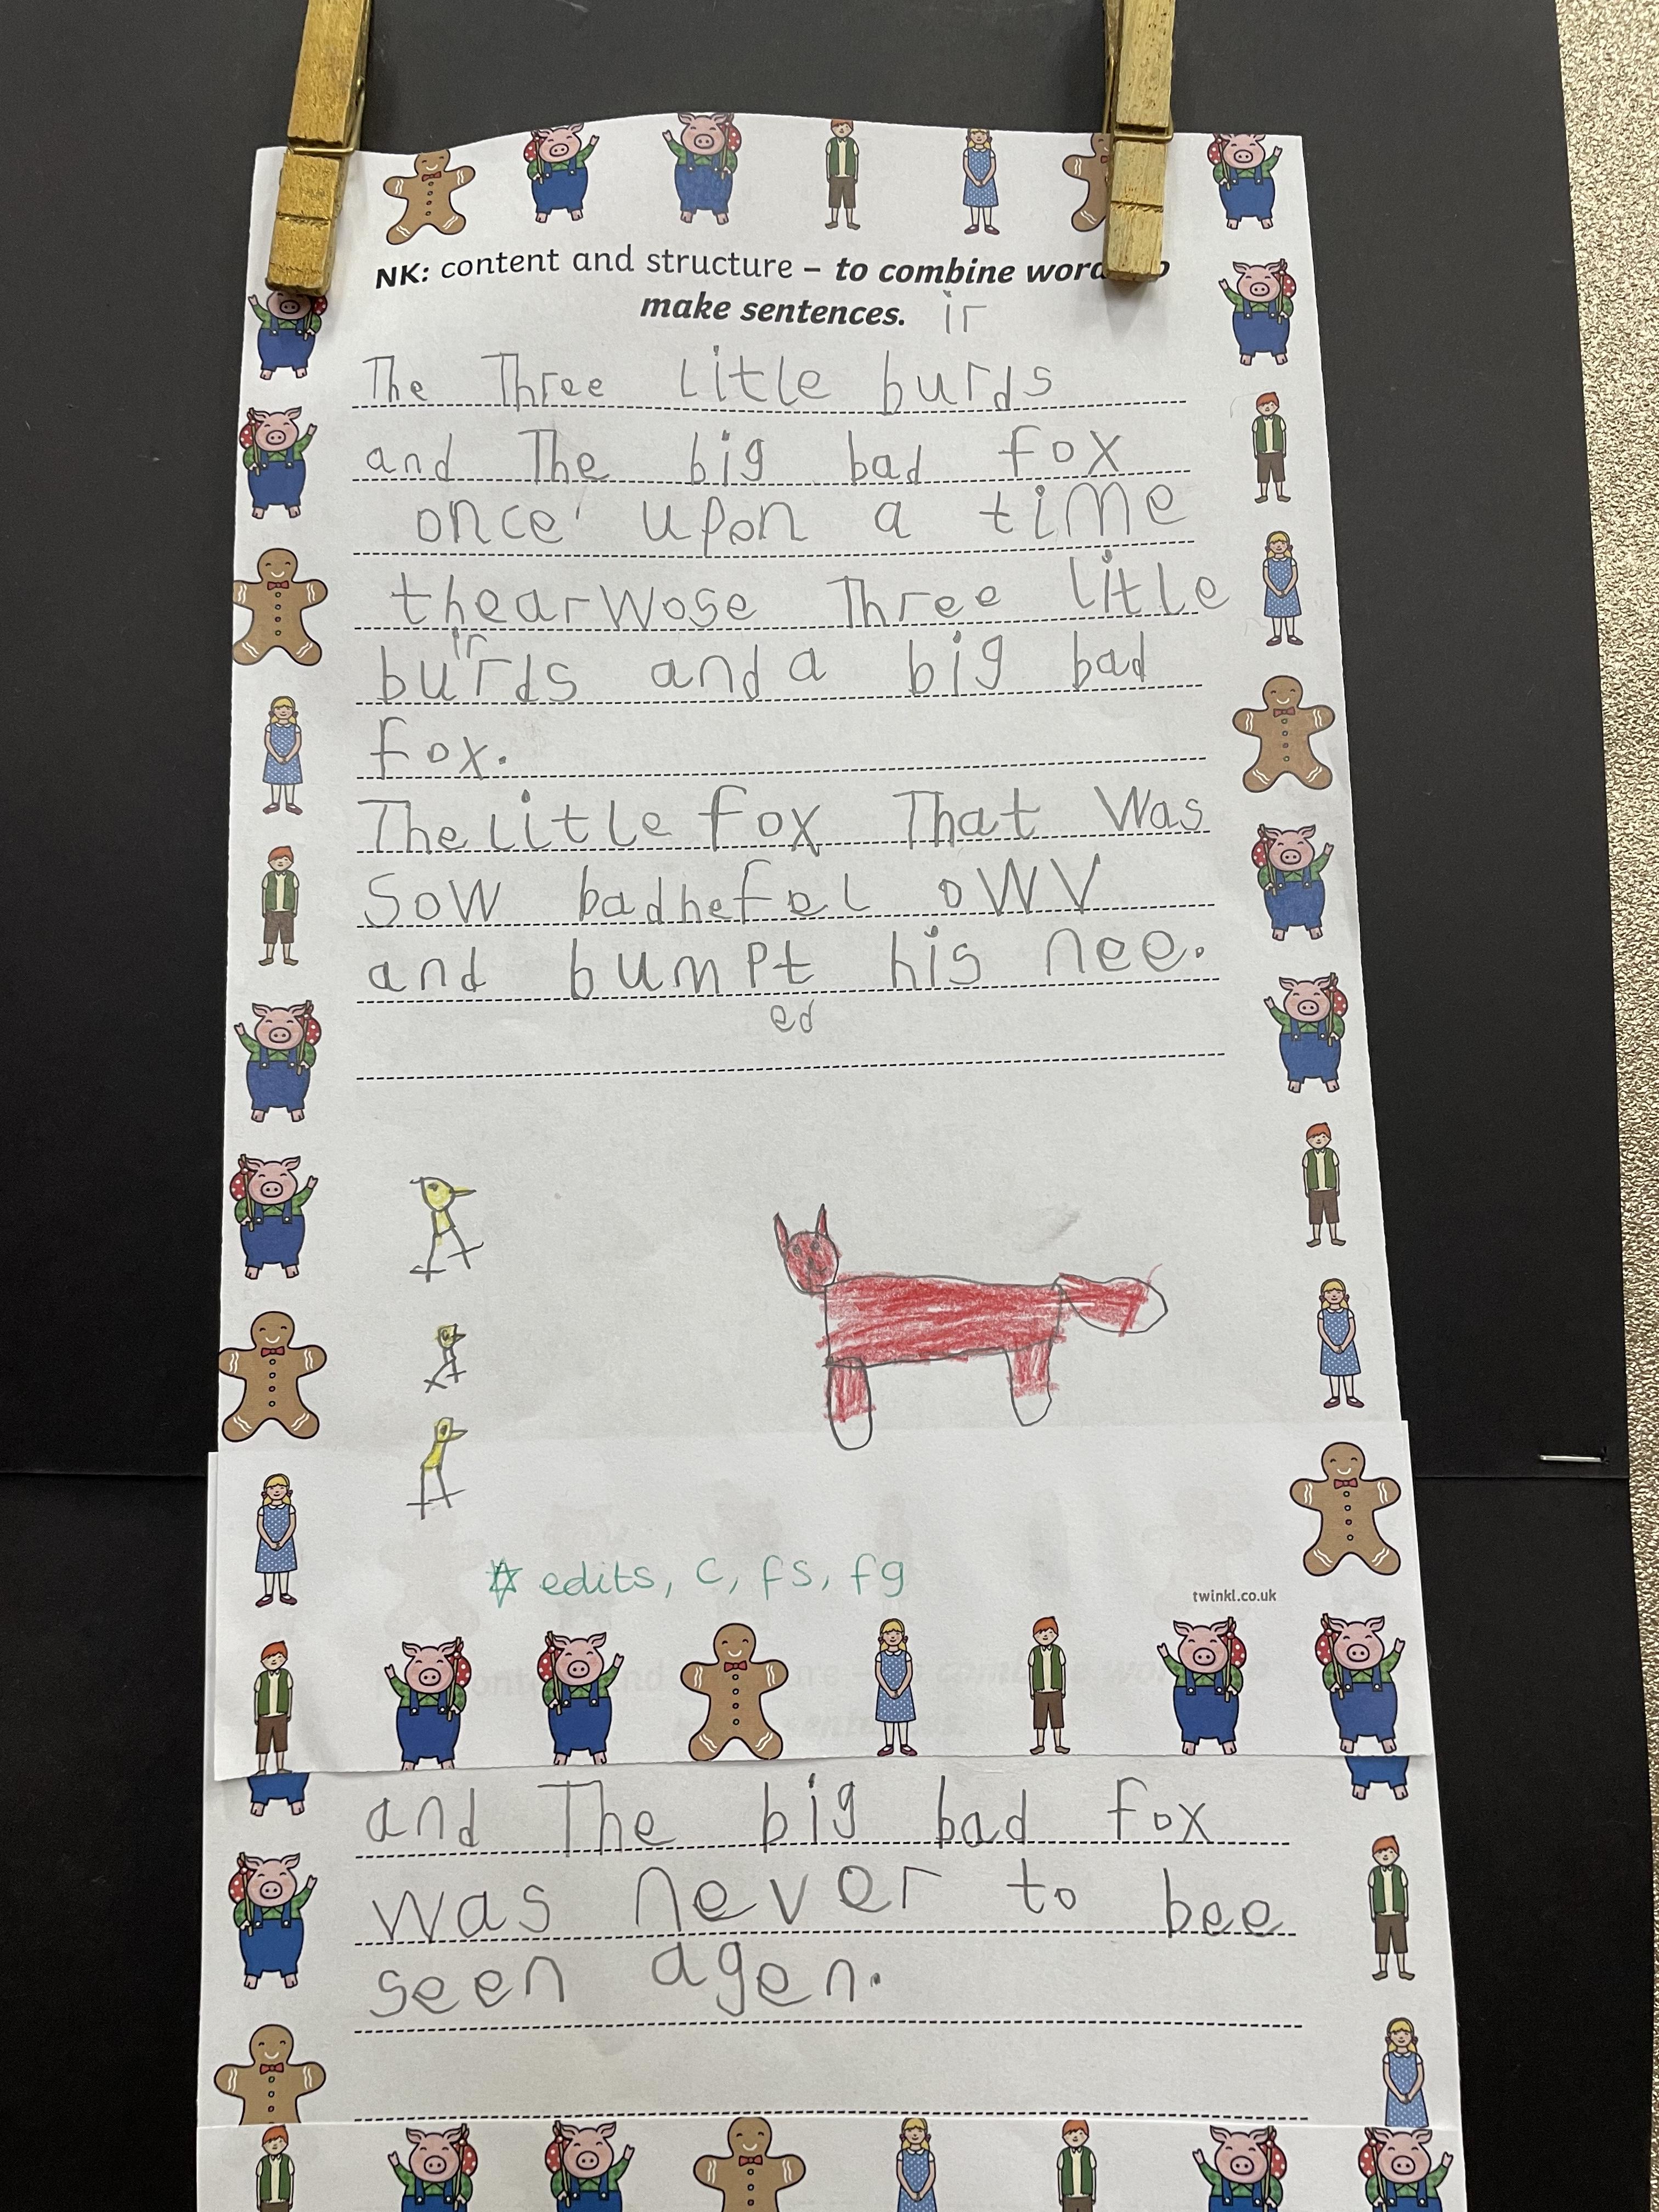 NK: content and structure – to combine words to
make sentences. ir
The Three Little burds
and The big bad fox
once upon a time
thearwose Three little
ir
burds and a big bad
fox.
The Little fox That Was
Sow badhefel oWV
and bumpt his nee.
ed
edits, c, fs, fg
twinkl.co.uk
and The big bad fox
was never to bee
seen agen.